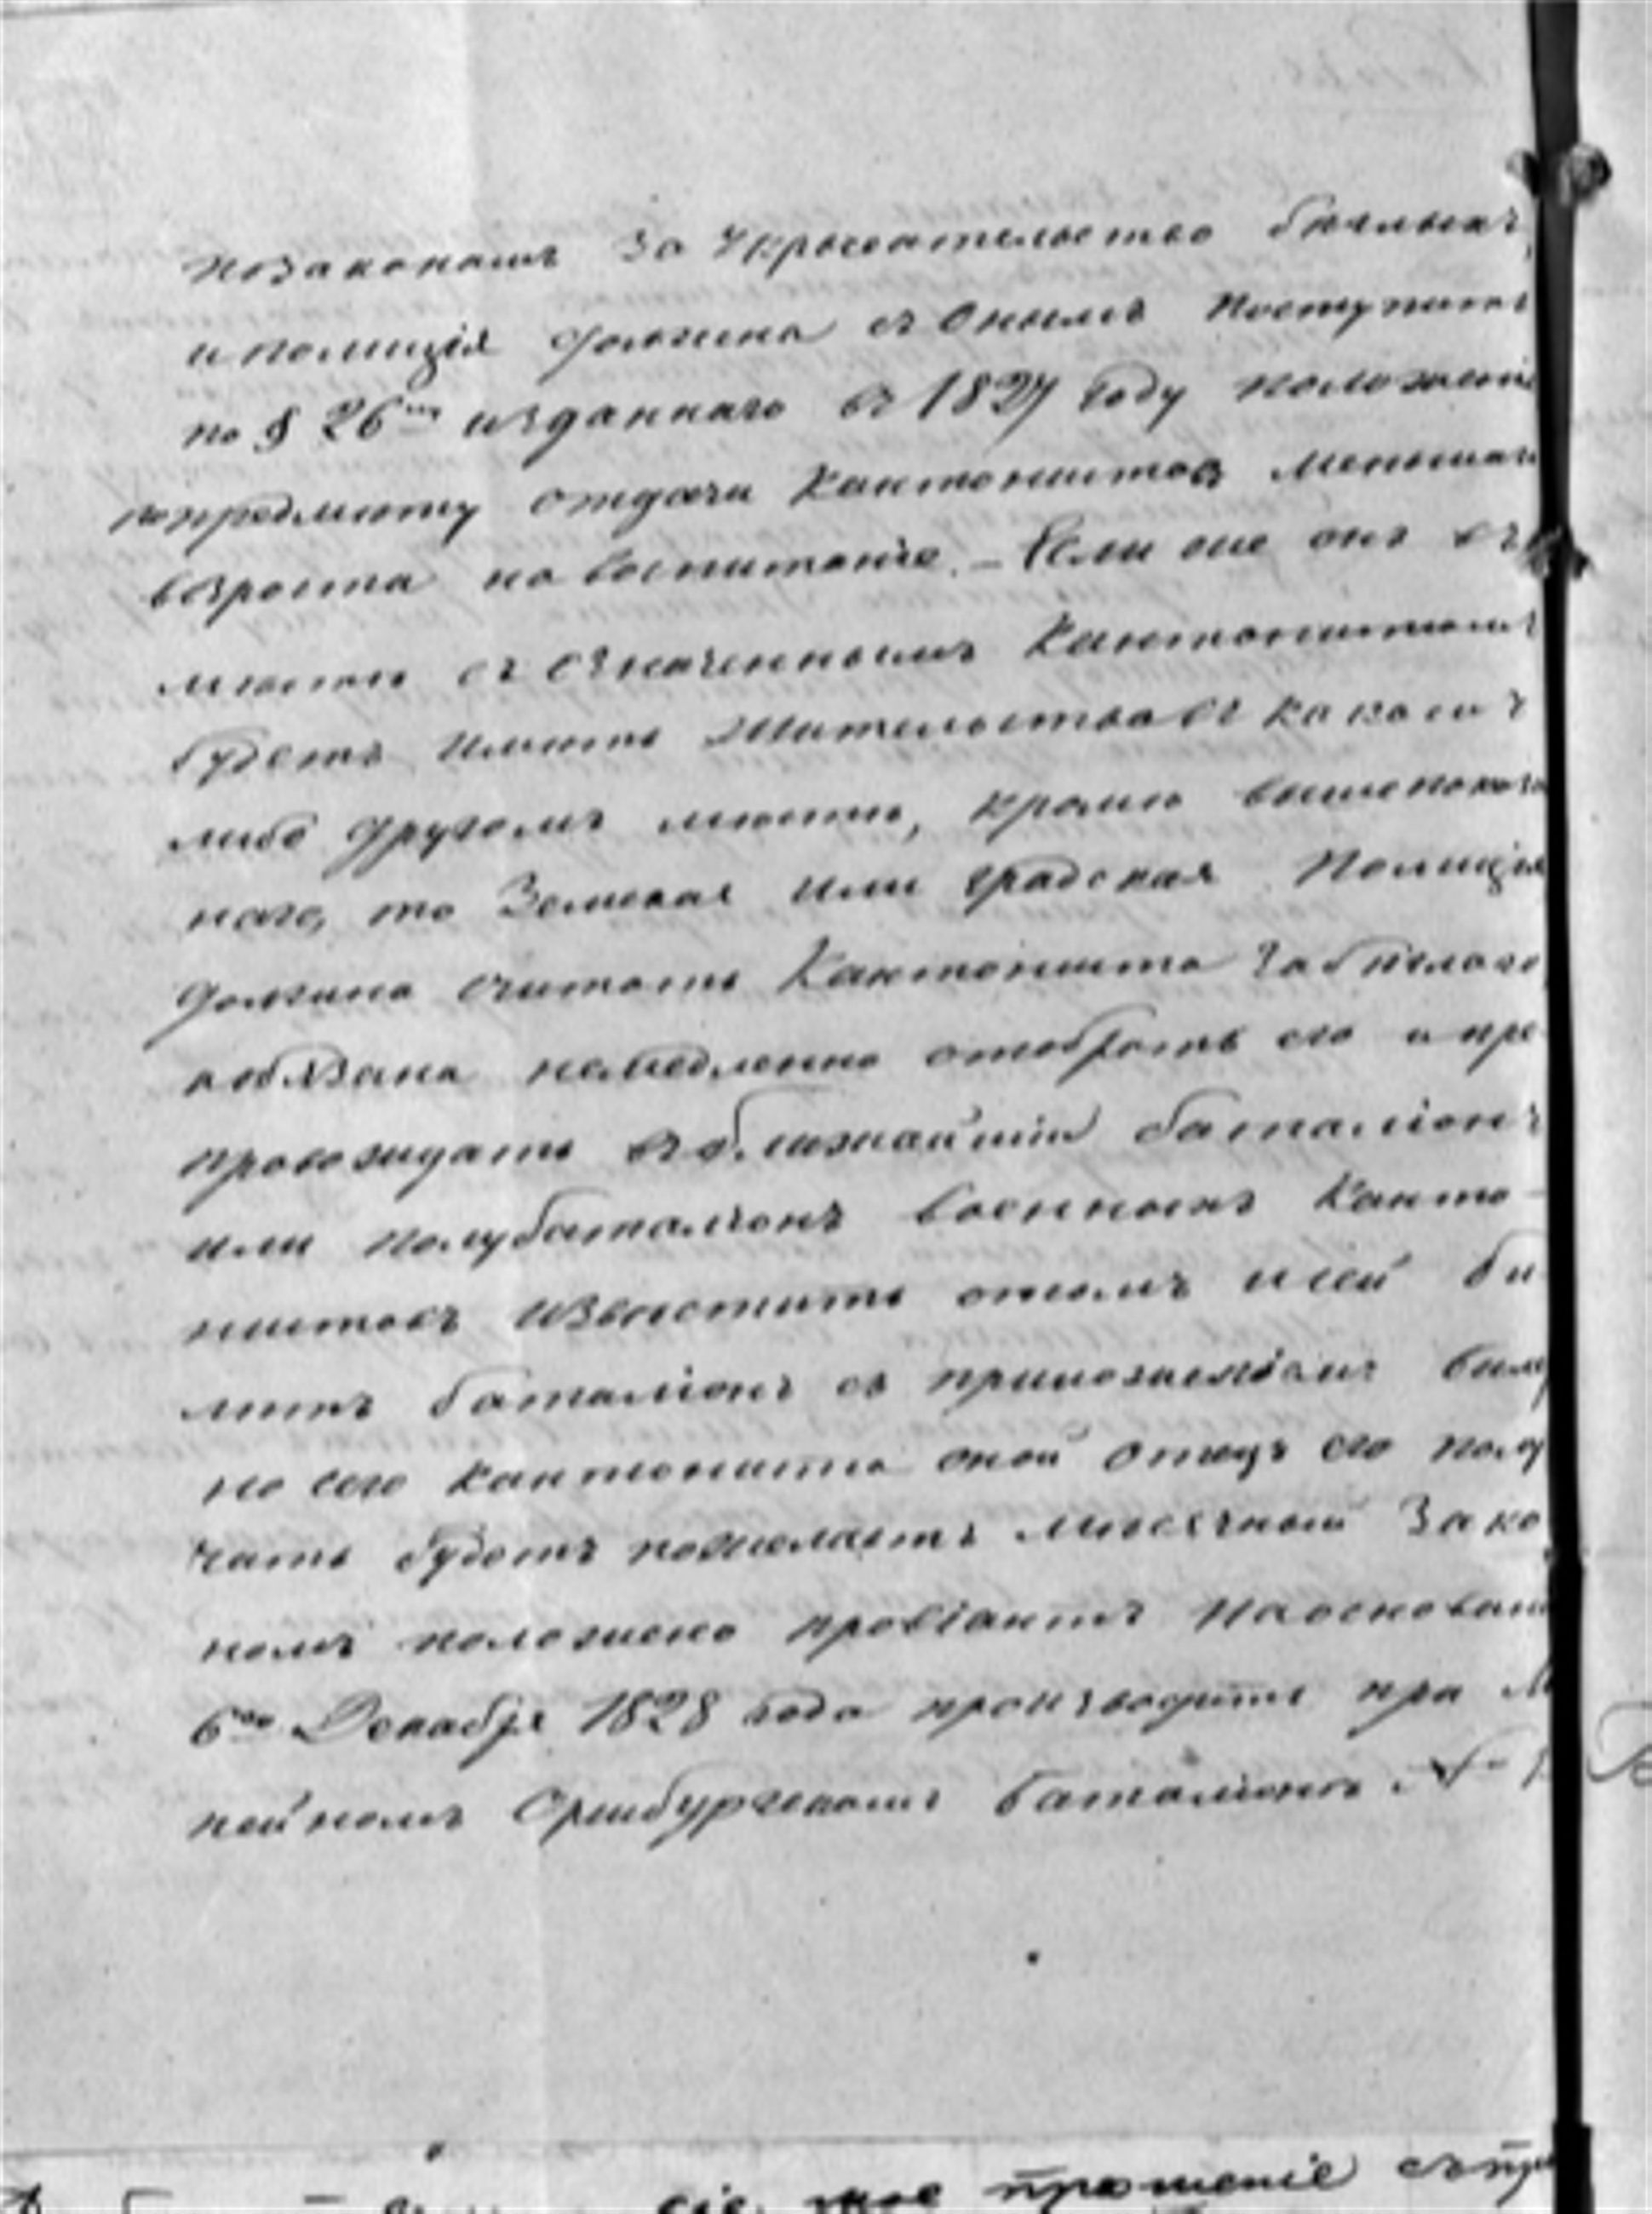 позаконамъ за укрывательство бѣглыхъ
и полиція должна съ онымъ поступать
по § 26му изданнаго въ 1827 году положенія
попредмѣту отдачи кантонистовъ меньшаго
возроста на воспитаніе. – Если же онъ въ
мѣстѣ съ означеннымъ кантонистомъ
будетъ имѣть жительство въ какомъ
либо другомъ мѣстѣ, кромѣ вышепоказа
наго, то Земская или градская полиція
должна считать кантониста за бѣглаго
и обязана немедленно отобрать его и пре
провождать въ ближайшій баталіонъ
или полубаталіонъ военныхъ канто-
нистовъ извѣстить отомъ и сей би
летъ баталіонъ съ приложеніемъ
на сего кантониста оной отецъ его полу
чать будетъ пожелаетъ мѣсячный зако
номъ положено провіантъ наосновани
6го Декабря 1828 года производить при
нейномъ Оренбургскомъ баталіонѣ №
сіе мое прошеніе